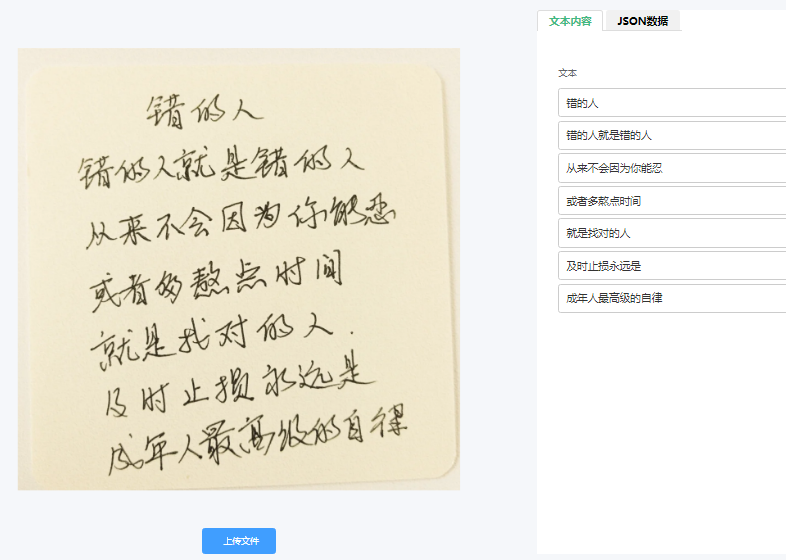 错的人
错的人就是错的人
从来不会因为你能忍
或者多熬点时间
就是找对的人.
及时止损永远是
成年人最高级的自律
上传文件
文本内容
JSON数据
文本
错的人
错的人就是错的人
从来不会因为你能忍
或者多熬点时间
就是找对的人
及时止损永远是
成年人最高级的自律